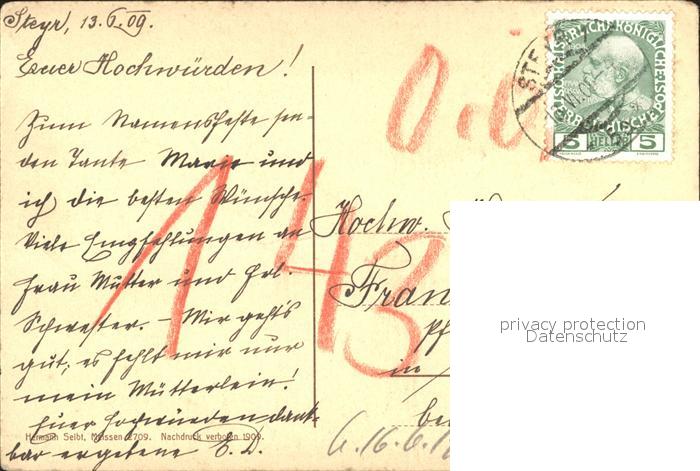 Steyr, 13.6.09.
Euer Hochwürden!
Zum Namensfeste sen-
den Tante Marie und
ich die besten Wünsche.
Viele Empfehlungen an
Frau Mutter und Frl.
Schwester. – Mir geht's
gut, es fehlt mir nur
mein Mütterlein!
Euer Hochwürden dank-
bar ergebene E. D.
Hermann Seibt, Meissen 2709. Nachdruck verboten 1909.
KAISERLICHE KÖNIGLICHE
ÖSTERREICHISCHE
5 HELLER 5
143
Hochw.
Fran
Pf
in
be
privacy protection
Datenschutz